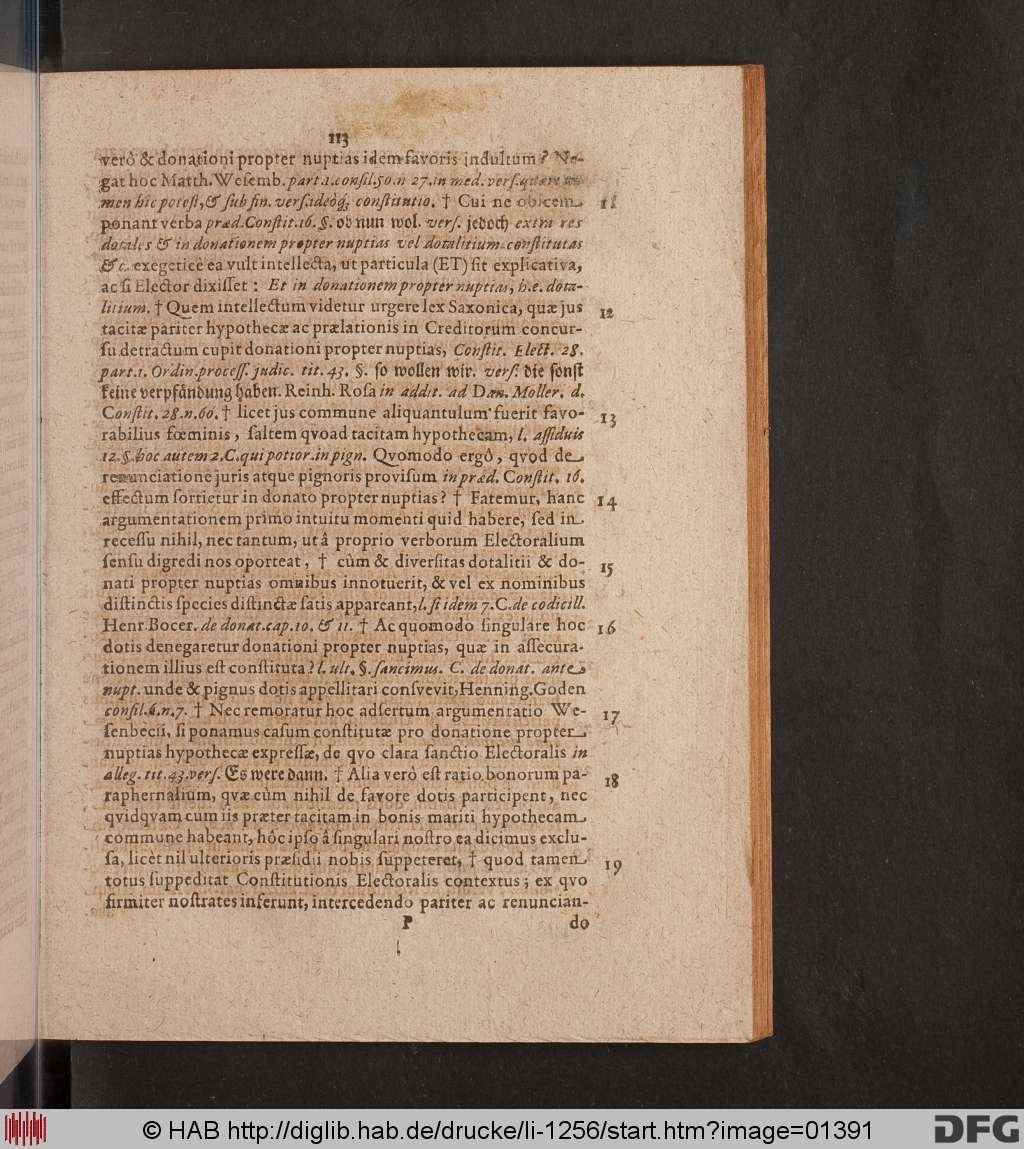 113
verô & donationi propter nuptias idem favoris indultum? Ne-
gat hoc Matth. Wesemb. part.1.consil.50.n 27. in med. vers. quare ta-
men hîc potest, & sub fin. vers. ideòq; constitutio. † Cui ne obicem 11
ponant verba præd. Constit. 16. §. ob nun wol. vers. jedoch extra res
dotales & in donationem propter nuptias vel dotalitium constitutas
&c. exegeticè ea vult intellecta, ut particula (ET) sit explicativa,
ac si Elector dixisset: Et in donationem propter nuptias, h.e. dota-
litium. † Quem intellectum videtur urgere lex Saxonica, quæ jus 12
tacitæ pariter hypothecæ ac prælationis in Creditorum concur-
su detractum cupit donationi propter nuptias, Constit. Elect. 28.
part.1. Ordin. process. judic. tit. 43. §. so wollen wir. vers. die sonst
keine verpfändung haben. Reinh. Rosa in addit. ad Dan. Moller. d.
Constit. 28.n.60. † licet jus commune aliquantulum fuerit favo- 13
rabilius fœminis, saltem qvoad tacitam hypothecam, l. assiduis
12.§. hoc autem 2. C. qui potior. in pign. Qvomodo ergô, qvod de
renunciatione juris atque pignoris provisum in præd. Constit. 16.
effectum sortietur in donato propter nuptias? † Fatemur, hanc 14
argumentationem primo intuitu momenti quid habere, sed in
recessu nihil, nec tantum, ut â proprio verborum Electoralium
sensu digredi nos oporteat, † cùm & diversitas dotalitii & do- 15
nati propter nuptias omnibus innotuerit, & vel ex nominibus
distinctis species distinctæ satis appareant, l. si idem 7. C. de codicill.
Henr. Bocer. de donat. cap. 10. & 11. † Ac quomodo singulare hoc 16
dotis denegaretur donationi propter nuptias, quæ in assecura-
tionem illius est constituta? l. ult. §. sancimus. C. de donat. ante
nupt. unde & pignus dotis appellitari consvevit, Henning. Goden
consil.6.n.7. † Nec remoratur hoc adsertum argumentatio We- 17
senbecii, si ponamus casum constitutæ pro donatione propter
nuptias hypothecæ expressæ, de qvo clara sanctio Electoralis in
alleg. tit. 43. vers. Es were dann. † Alia verò est ratio bonorum pa- 18
raphernalium, qvæ cùm nihil de favore dotis participent, nec
qvidqvam cum iis præter tacitam in bonis mariti hypothecam
commune habeant, hôc ipso â singulari nostro ea dicimus exclu-
sa, licèt nil ulterioris præsidii nobis suppeteret, † quod tamen 19
totus suppeditat Constitutionis Electoralis contextus; ex qvo
firmiter nostrates inferunt, intercedendo pariter ac renuncian-
P do
© HAB http://diglib.hab.de/drucke/li-1256/start.htm?image=01391
DFG